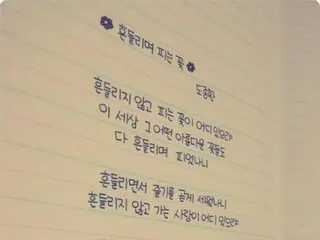 흔들리며 피는 꽃
도종환
흔들리지 않고 피는 꽃이 어디 있으랴
이 세상 그 어떤 아름다운 꽃들도
다 흔들리며 피었나니
흔들리면서 줄기를 곧게 세웠나니
흔들리지 않고 가는 사랑이 어디 있으랴